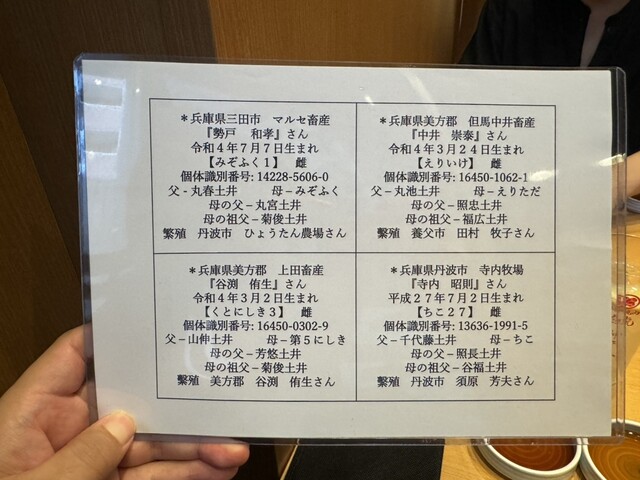 ＊兵庫県三田市　マルセ畜産
『勢戸　和孝』さん
令和４年７月７日生まれ
【みぞふく１】　雌
個体識別番号: 14228-5606-0
父 - 丸春土井　　母−みぞふく
母の父−丸宮土井
母の祖父−菊俊土井
繫殖　丹波市　ひょうたん農場さん
＊兵庫県美方郡　但馬中井畜産
『中井　崇泰』さん
令和４年３月２４日生まれ
【えりいけ】　雌
個体識別番号: 16450-1062-1
父−丸池土井　　母−えりただ
母の父−照忠土井
母の祖父−福広土井
繫殖　養父市　田村　牧子さん
＊兵庫県美方郡　上田畜産
『谷渕　侑生』さん
令和４年３月２日生まれ
【くとにしき３】　雌
個体識別番号: 16450-0302-9
父−山伸土井　　母−第５にしき
母の父−芳悠土井
母の祖父−菊俊土井
繫殖　美方郡　谷渕　侑生さん
＊兵庫県丹波市　寺内牧場
『寺内　昭則』さん
平成２７年７月２日生まれ
【ちこ２７】　雌
個体識別番号: 13636-1991-5
父−千代藤土井　　母−ちこ
母の父−照長土井
母の祖父−谷福土井
繫殖　丹波市　須原　芳夫さん